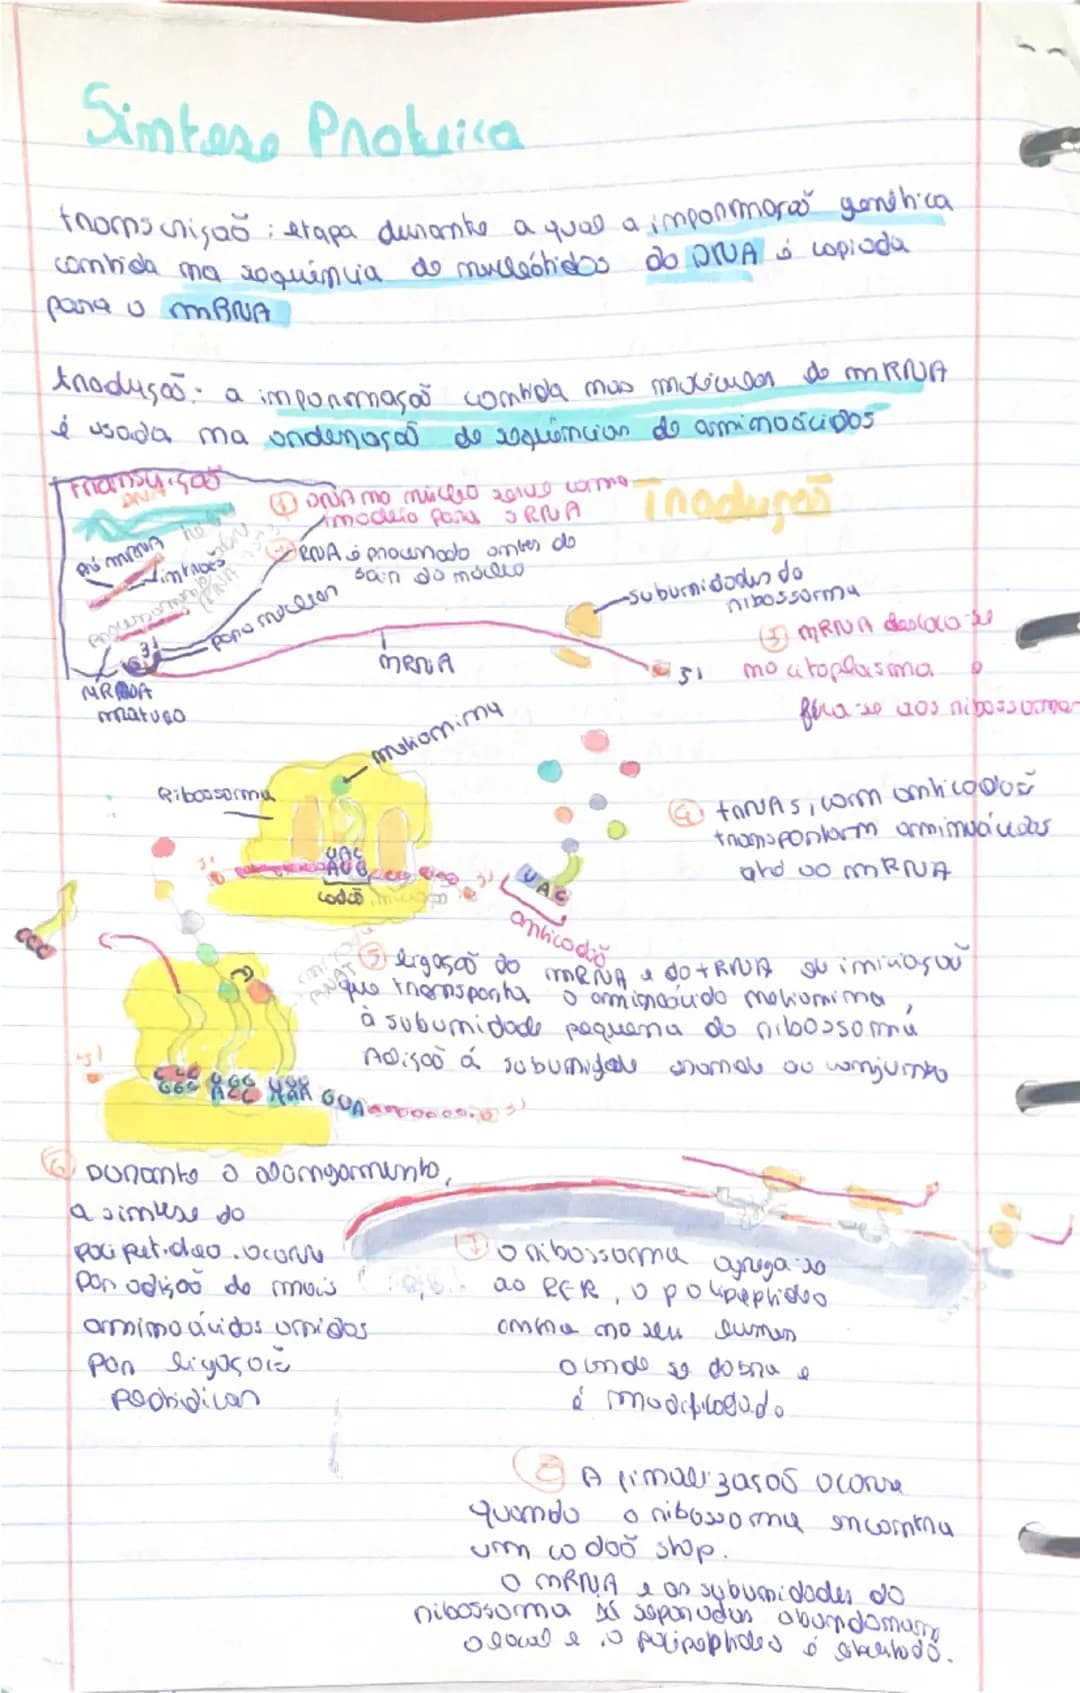 Síntese Proteica
transcrição: etapa durante a qual a informação genética
contida na sequência de nucleótidos do DNA é copiada
para o mRNA
tradução: a informação contida nas moléculas de mRNA
é usada na ordenação de sequências de aminoácidos
Transcrição
DNA
Pré mRNA
intrões
① DNA no núcleo serve como
modelo para o RNA
RNA é processado antes de
sair do núcleo
poro nuclear
mRNA
maturo
mRNA
5'
Tradução
subunidades do
ribossoma
③ mRNA desloca-se
no citoplasma e
fixa-se aos ribossomas
metionina
Ribossoma
UAC
AUG
codão iniciação
UAC
anticodão
④ tRNAs, com anticodão
transportam aminoácidos
até ao mRNA
CCC
⑤ ligação do mRNA e do tRNA de iniciação
que transporta o aminoácido metionina,
à subunidade pequena do ribossoma
Adição á subunidade grande ao conjunto
GUA
⑥ Durante o alongamento,
a síntese do
polipeptideo ocorre
por adição de mais
aminoácidos unidos
por ligação
peptidicas
⑦ o ribossoma agrega-se
ao RER, o polipeptideo
entra no seu lumen
onde se dobra e
é modificado
⑧ A finalização ocorre
quando o ribossoma encontra
um codão stop.
O mRNA e as subunidades do
ribossoma separadas abandonam
o local e o polipeptideo é